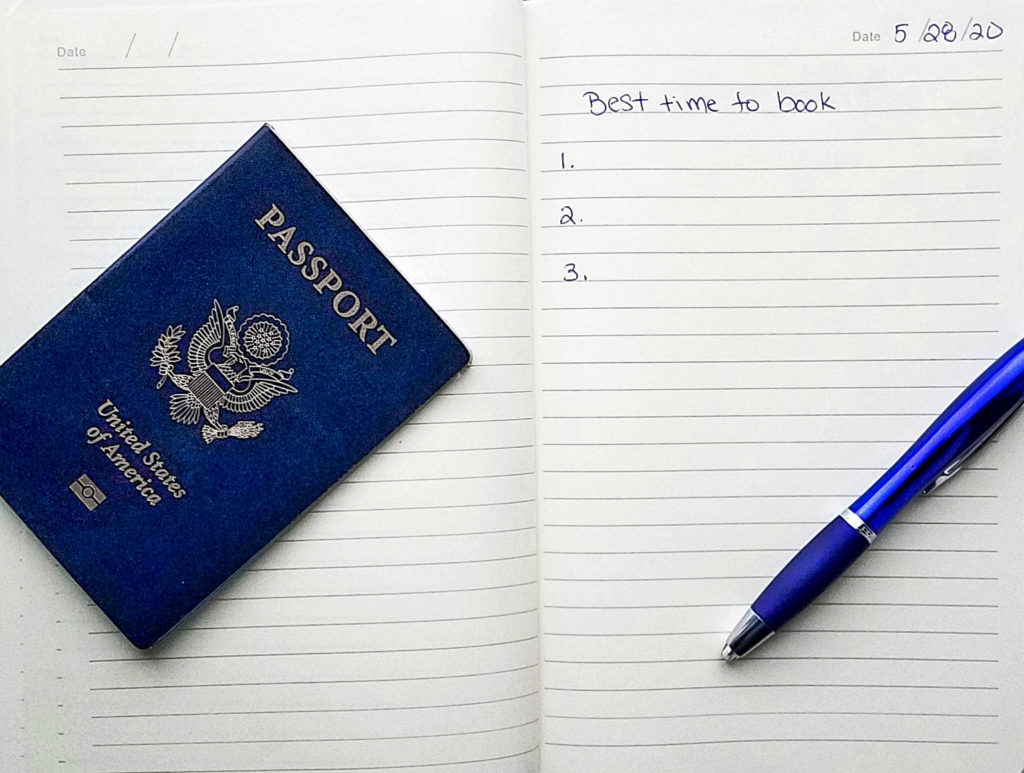 Date / /
PASSPORT
United States
of America
Date 5/28/20
Best time to book
1.
2.
3.